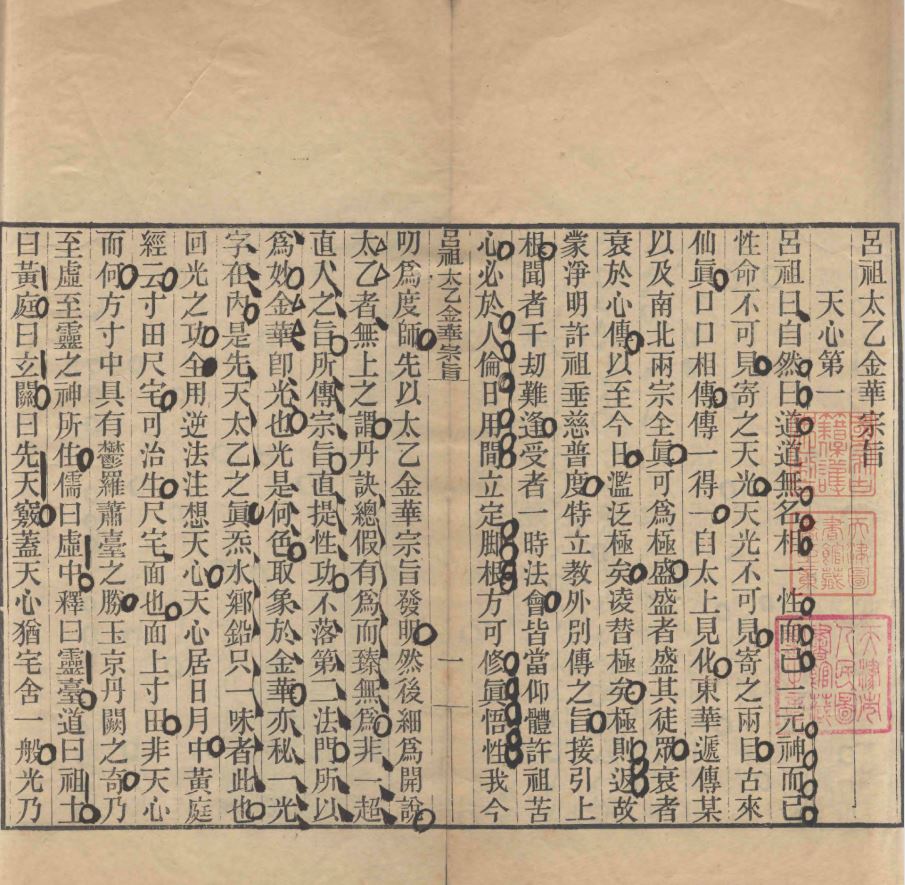 呂祖太乙金華宗旨
天心第一
呂祖曰自然曰道道無名相一性而已一元神而已
性命不可見寄之天光天光不可見寄之兩目古來
仙眞口口相傳傳一得一自太上見化東華遞傳某
以及南北兩宗全眞可爲極盛盛者盛其徒眾衰者
衰於心傳以至今日濫泛極矣凌替極矣極則返故
蒙淨明許祖垂慈普度特立教外別傳之旨接引上
根聞者千劫難逢受者一時法會皆當仰體許祖苦
心必於人倫日用間立定脚根方可修眞悟性我今
呂祖太乙金華宗旨 一
叨爲度師先以太乙金華宗旨發明然後細爲開說
太乙者無上之謂丹訣總假有爲而臻無爲非一超
直入之旨所傳宗旨直提性功不落第二法門所以
爲妙金華卽光也光是何色取象於金華亦秘一光
字在內是先天太乙之眞炁水鄉鉛只一味者此也
回光之功全用逆法注想天心天心居日月中黃庭
經云寸田尺宅可治生尺宅面也面上寸田非天心
而何方寸中具有鬱羅蕭臺之勝玉京丹闕之奇乃
至虛至靈之神所住儒曰虛中釋曰靈臺道曰祖土
曰黃庭曰玄關曰先天竅蓋天心猶宅舍一般光乃